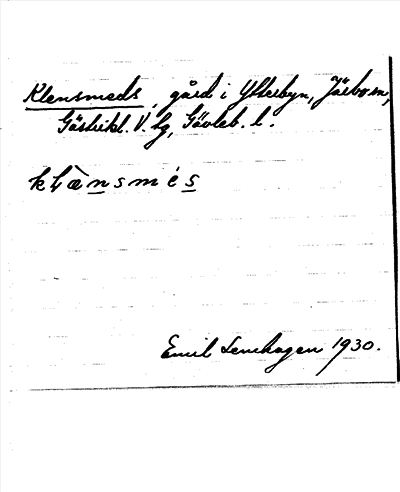 Klensmeds, gård i Ytterbyn, Järbo sn,
Gästrikl. V. tg, Gävleb. l.
kḷæ̀nsmés
Emil Lenhagen 1930.